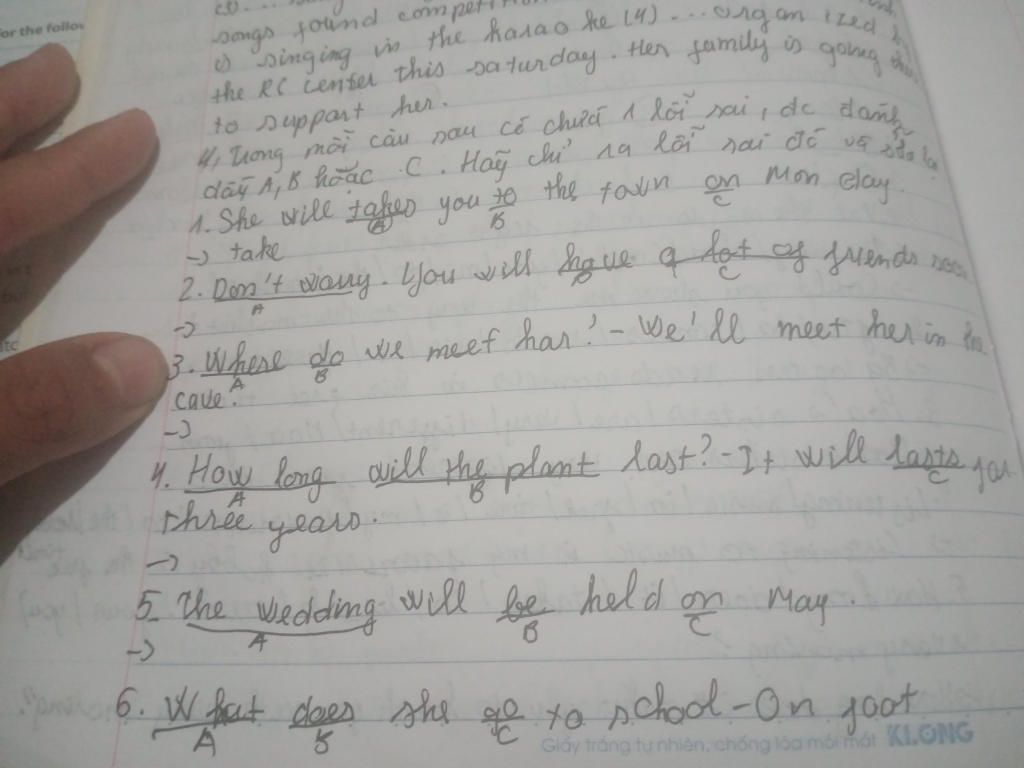 or the follow
songs found competition
is singing in the karao ke (4) ... organ ized
the RC center this saturday. Her family is going
to support her.
4, Trong mỗi câu sau có chứa 1 lỗi sai, đc đánh
dấy A, B hoặc C. Hãy chỉ ra lỗi sai đó và sửa lại
1. She will takes you to the town on Mon day.
A B C
-> take
2. Don't wory. You will have a lot of friends soon
A B C
->
3. Where do we meet har? - We'll meet her in
A B
cave.
->
4. How long will the plant last? - It will lasts for
A B C
three years.
->
5. The wedding will be held on May.
A B C
->
6. What does she go to school - On foot
A B C
Giấy trắng tự nhiên, chống lóa mỏi mắt KLONG